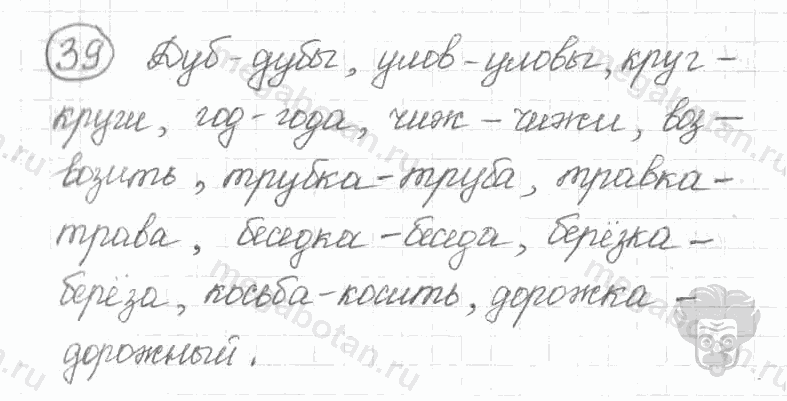 39 Дуб - дубы, улов - уловы, круг -
круги, год - года, чиж - чижи, воз -
возить, трубка - труба, травка -
трава, беседка - беседа, берёзка -
берёза, косьба - косить, дорожка -
дорожный.